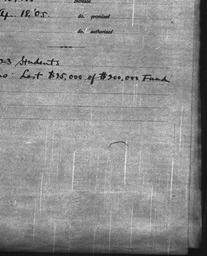 Ap. 18.'05. do. promised
do. authorized
23 Students
Last $25,000 of $200,000 Fund